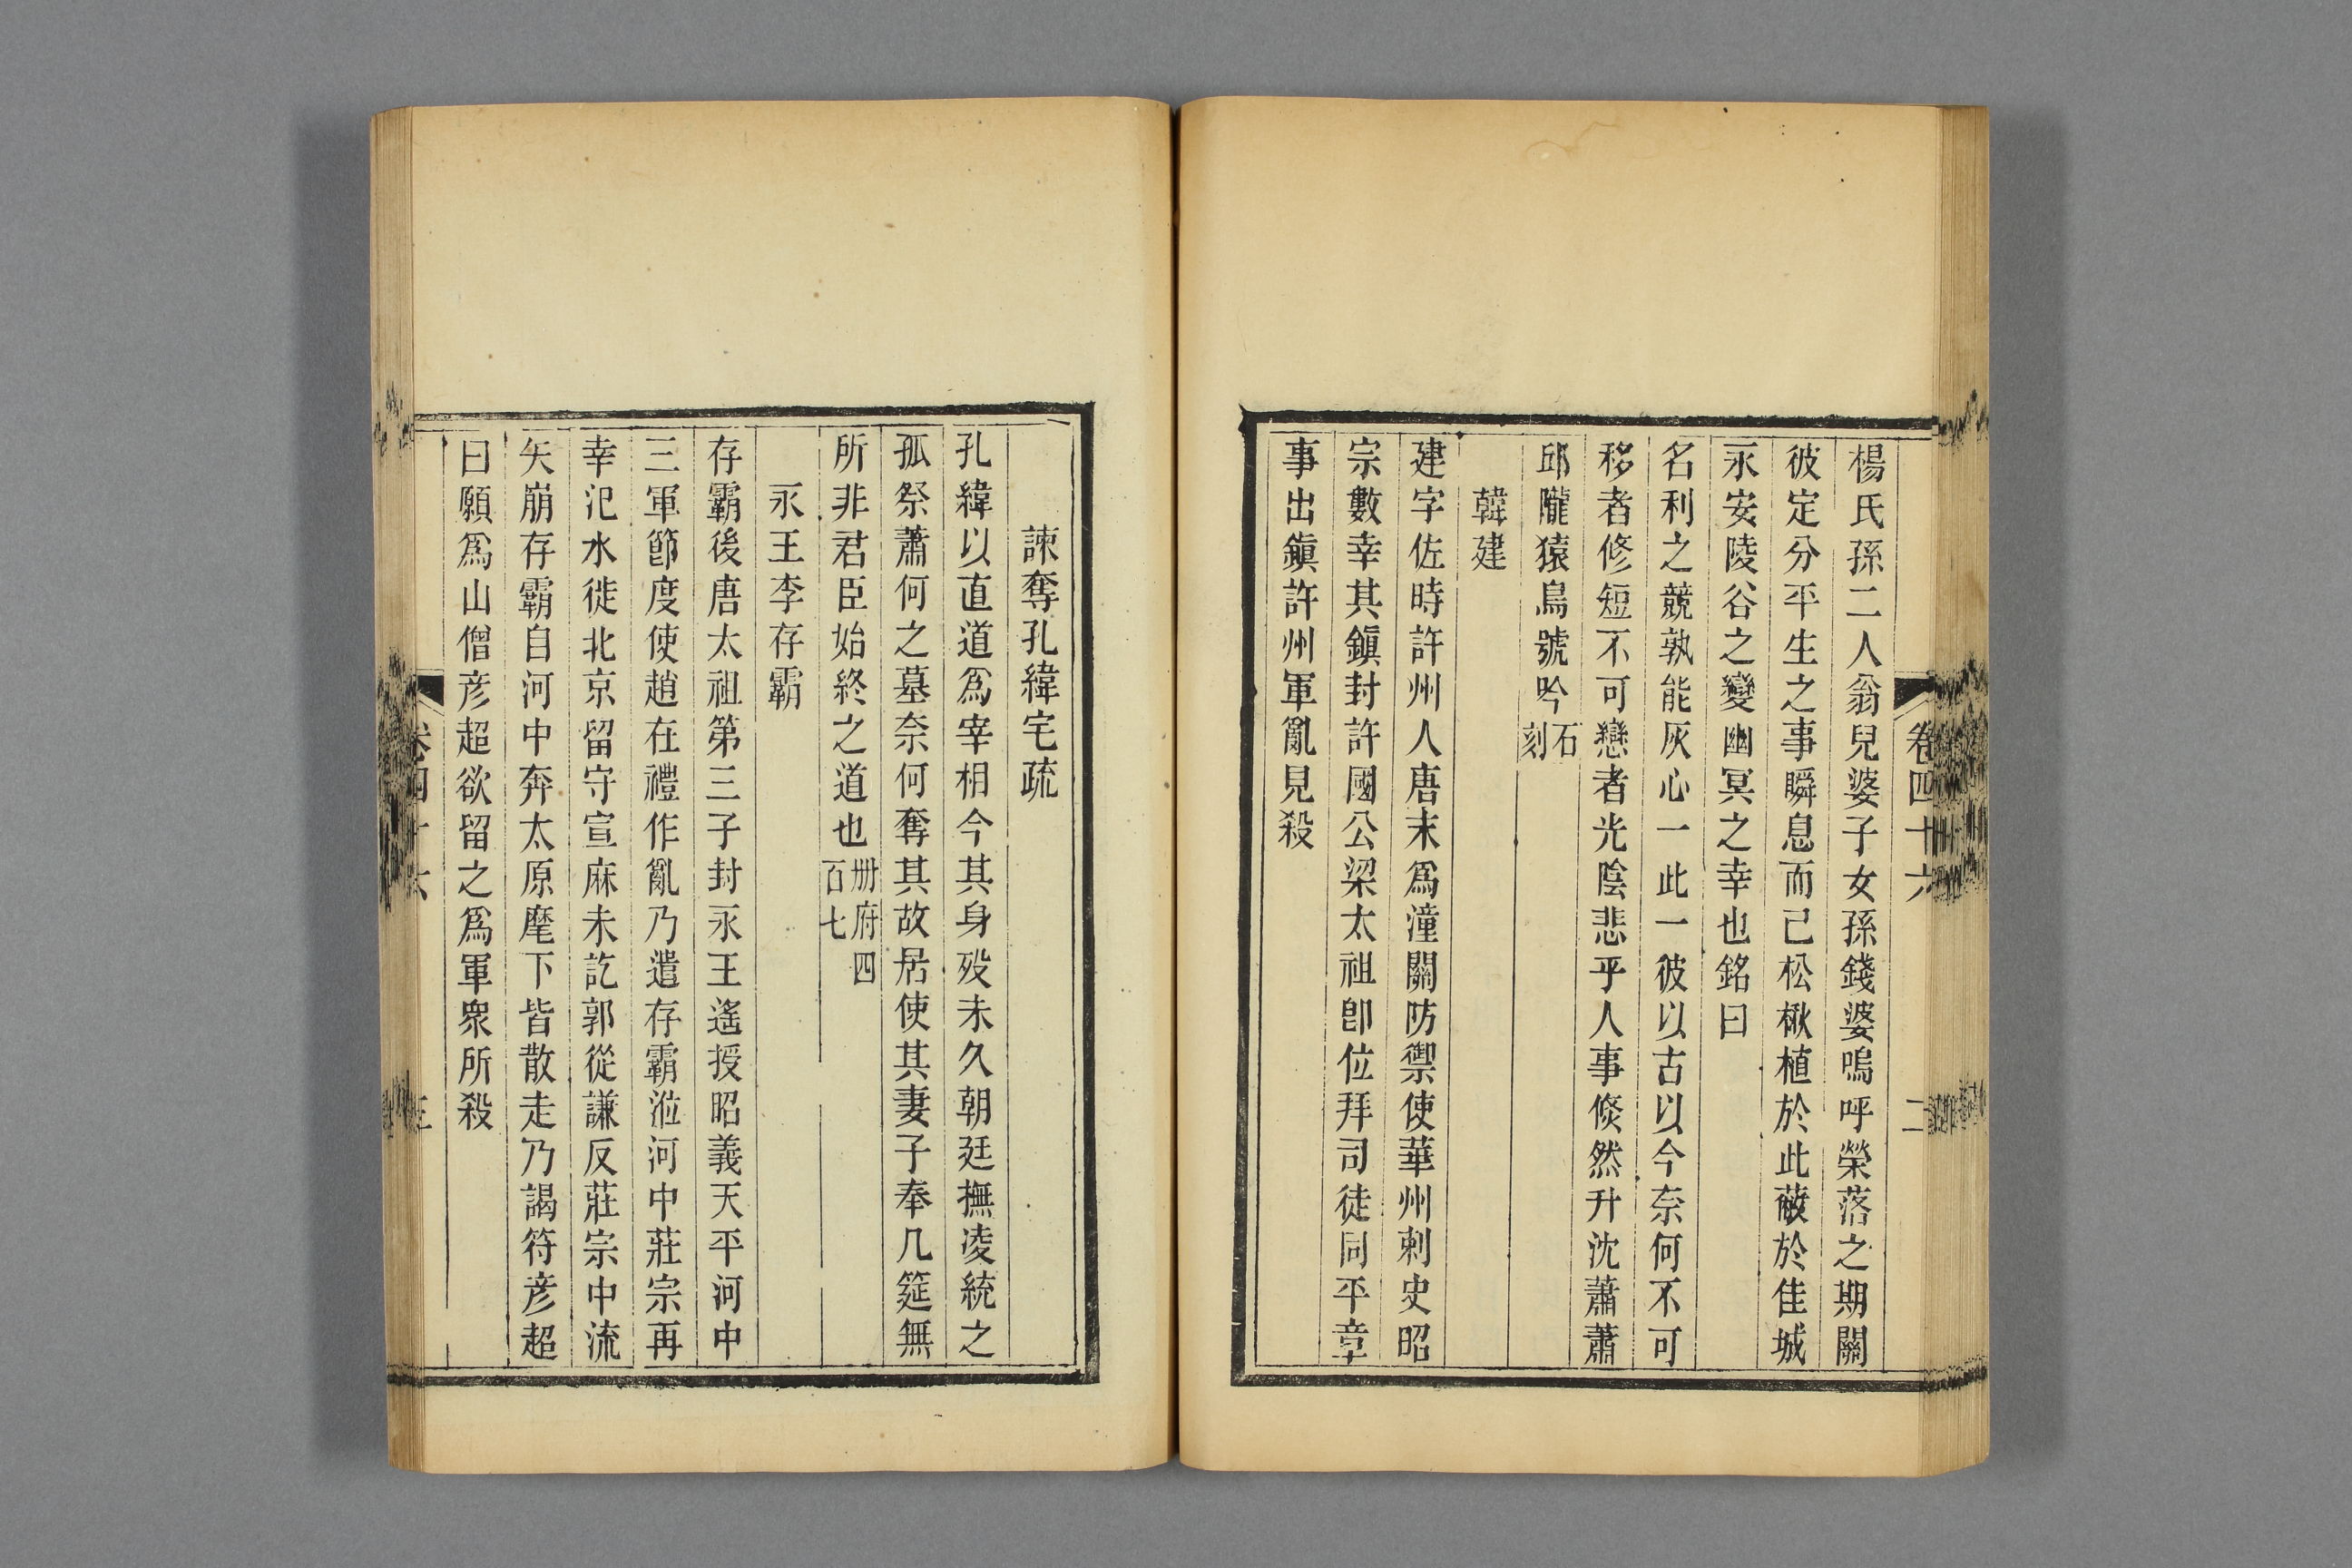 卷四十六
二
楊氏孫二人翁兒婆子女孫錢婆嗚呼榮落之期關
彼定分平生之事瞬息而已松楸植於此蔽於佳城
永安陵谷之變幽冥之幸也銘曰
名利之競孰能灰心一此一彼以古以今奈何不可
移者修短不可戀者光陰悲乎人事倐然升沈蕭蕭
邱隴猿鳥號吟石刻
韓建
建字佐時許州人唐末爲潼關防禦使華州刺史昭
宗數幸其鎭封許國公梁太祖卽位拜司徒同平章
事出鎭許州軍亂見殺
諫奪孔緯宅疏
孔緯以直道爲宰相今其身歿未久朝廷撫凌統之
孤祭蕭何之墓奈何奪其故居使其妻子奉几筵無
所非君臣始終之道也冊府四百七
永王李存霸
存霸後唐太祖第三子封永王遙授昭義天平河中
三軍節度使趙在禮作亂乃遣存霸涖河中莊宗再
幸汜水徙北京留守宣麻未訖郭從謙反莊宗中流
矢崩存霸自河中奔太原麾下皆散走乃謁符彥超
曰願爲山僧彥超欲留之爲軍衆所殺
卷四十六
三